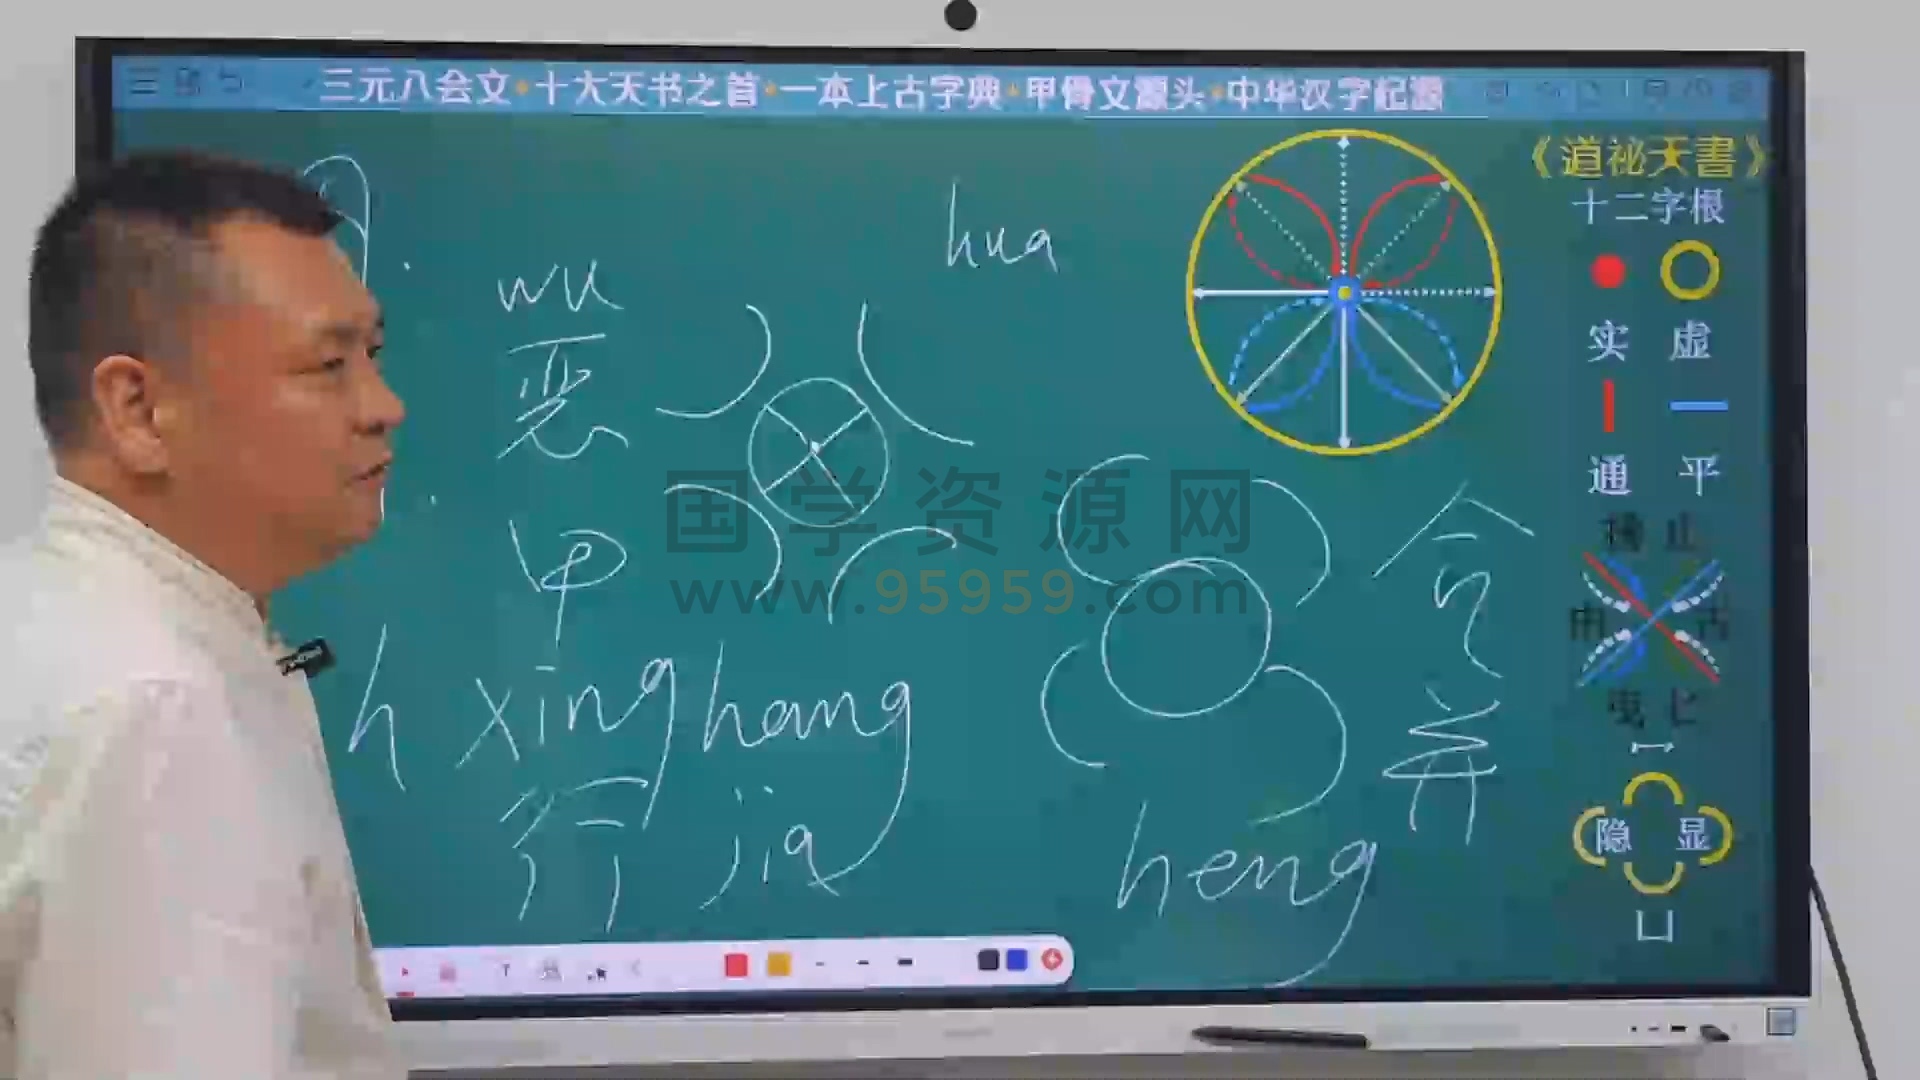 三元八会文·十大天书之首·一本上古字典·甲骨文源头·中华汉字起源
《道祕天書》
十二字根
实 虚
通 平
隐 显
hua
wu
恶
甲
h xing hang
行 jia
heng
国学资源网
www.95959.com